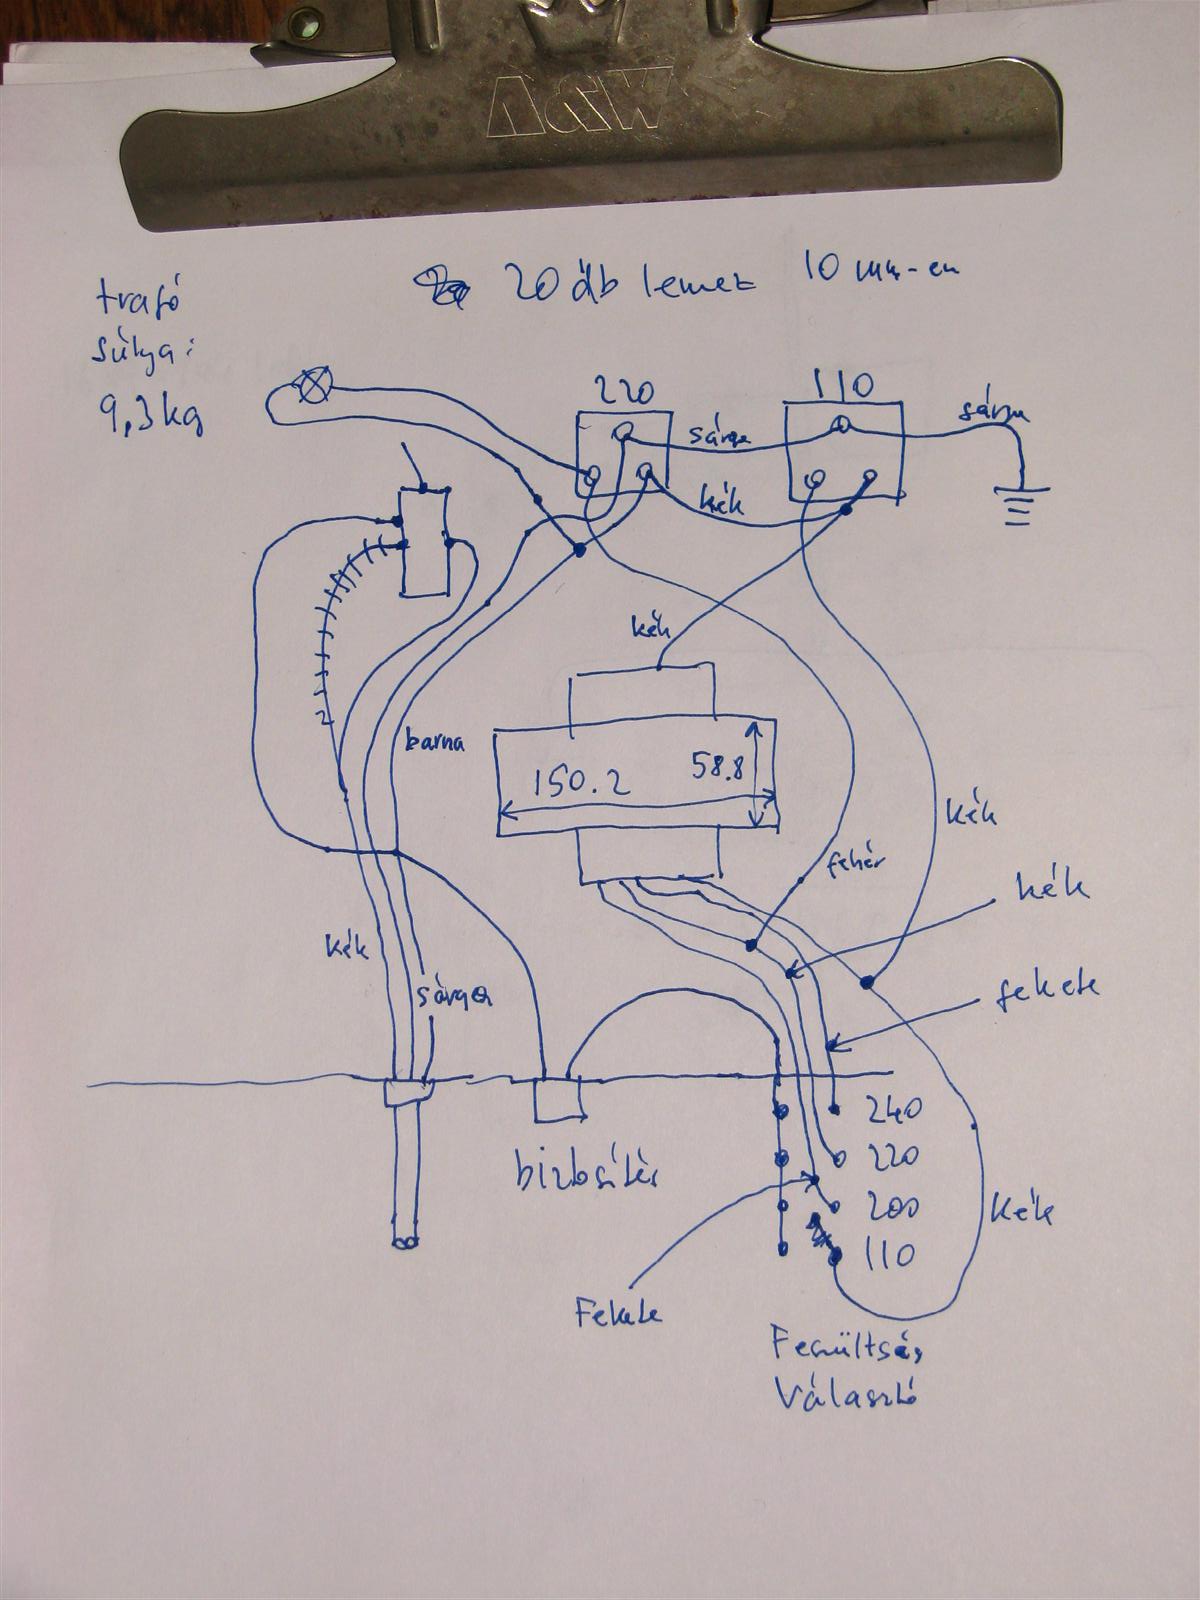 A&W
20 db lemez 10 mm-en
trafó
súlya:
9,3kg
220
110
sárga
sárga
kék
kék
barna
150.2
58.8
fehér
kék
kék
kék
sárga
fekete
240
220
bizbsítés
200
kék
110
Fekete
Feszültség
Választó